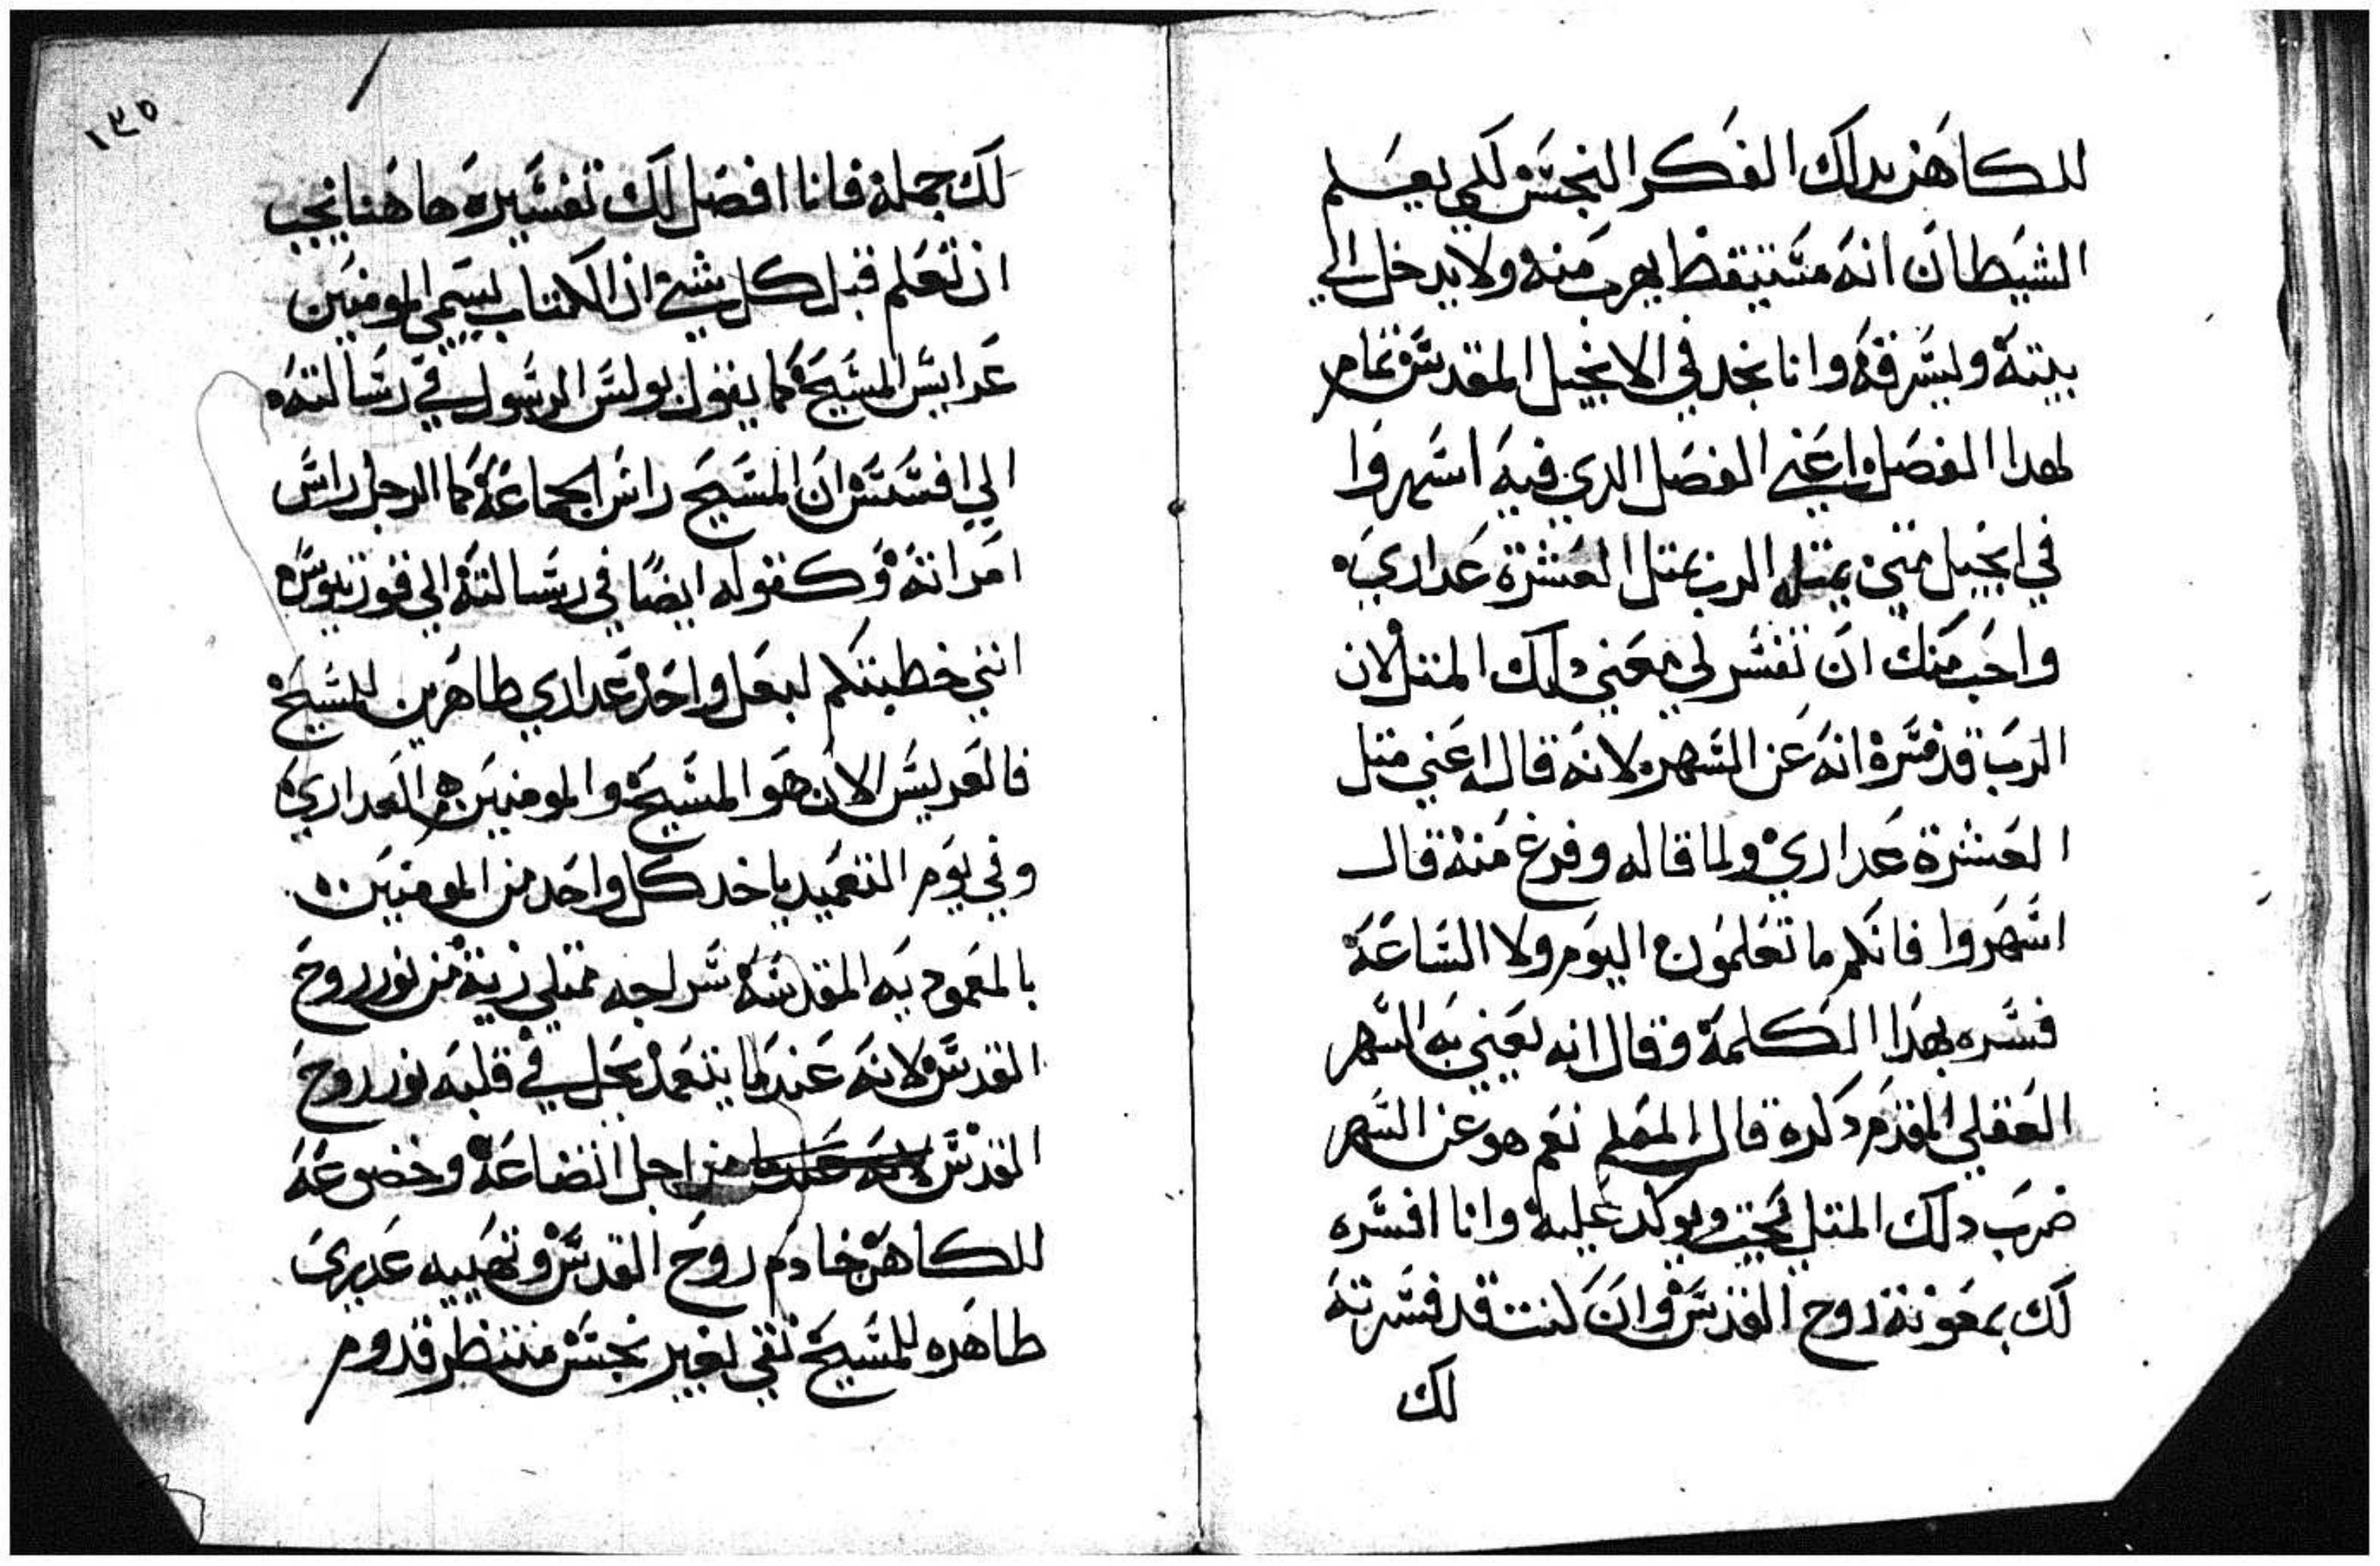 للكاهن بدلك الفكر النجس لكي يعلم
الشيطان انه متيقظ يهرب منه ولا يدخل الي
بيته ويسرقه وانا نجد في الانجيل المقدس تمام
لهدا الفصل واعني الفصل الدي فيه اسهروا
في انجيل متي يمتله الرب بمتل العشرة عداري
واحب منك ان تفسر لي معني دلك المتل لان
الرب قد فسره انه عن السهر لانه قال اعني متل
العشرة عداري ولما قاله وفرغ منه قال
اسهروا فانكم ما تعلمون اليوم ولا الساعة
فسره بهدا الكلمة وقال انه يعني به السهر
العقلي المقدم دكره قال المعلم نعم هو عن السهر
ضرب دلك المتل يحتت ويوكد عليه وانا افسره
لك بمعونة روح القدس وان كنت قد فسرته
لك
١٣٥
لك جملة فانا افصل لك تفسيره هاهنا يجب
ان تعلم قبل كل شي ان الكتاب يسمي المومنين
عرايس المسيح كما يقول بولس الرسول في رسالته
الي افسس ان المسيح راس الجماعة كما الرجل راس
امراته وكقوله ايضا في رسالته الي قورنتيوس
انني خطبتكم لبعل واحد عداري طاهرين للمسيح
فالعريس الان هو المسيح والمومنين هم العداري
وفي يوم التعميد ياخد كل واحد من المومنين
بالمعموديه المقدسة سراجه ممتلي زيت من نور روح
القدس لانه عندما يتعمد يحل في قلبه نور روح
القدس لانه عندما من اجل اتضاعه وخضوعه
للكاهن خادم روح القدس وتهييه عديري
طاهره للمسيح نقي بغير نجس منتظر قدوم